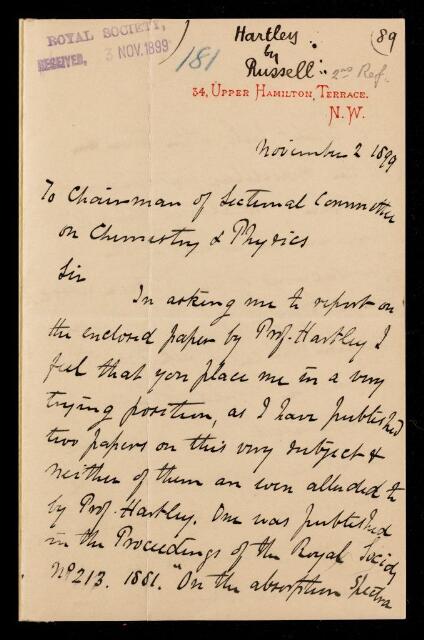 ROYAL SOCIETY,
RECEIVED, 3 NOV. 1899
181
Hartley
by
Russell
2nd Ref.
89
34, UPPER HAMILTON TERRACE.
N.W.
November 2 1899
To Chairman of Sectional Committee
on Chemistry & Physics
Sir
In asking me to report on
the enclosed paper by Prof. Hartley I
feel that you place me in a very
trying position, as I have published
two papers on this very subject &
neither of them are even alluded to
by Prof. Hartley. One was published
in the Proceedings of the Royal Society
No 213. 1881. "On the absorption Spectra